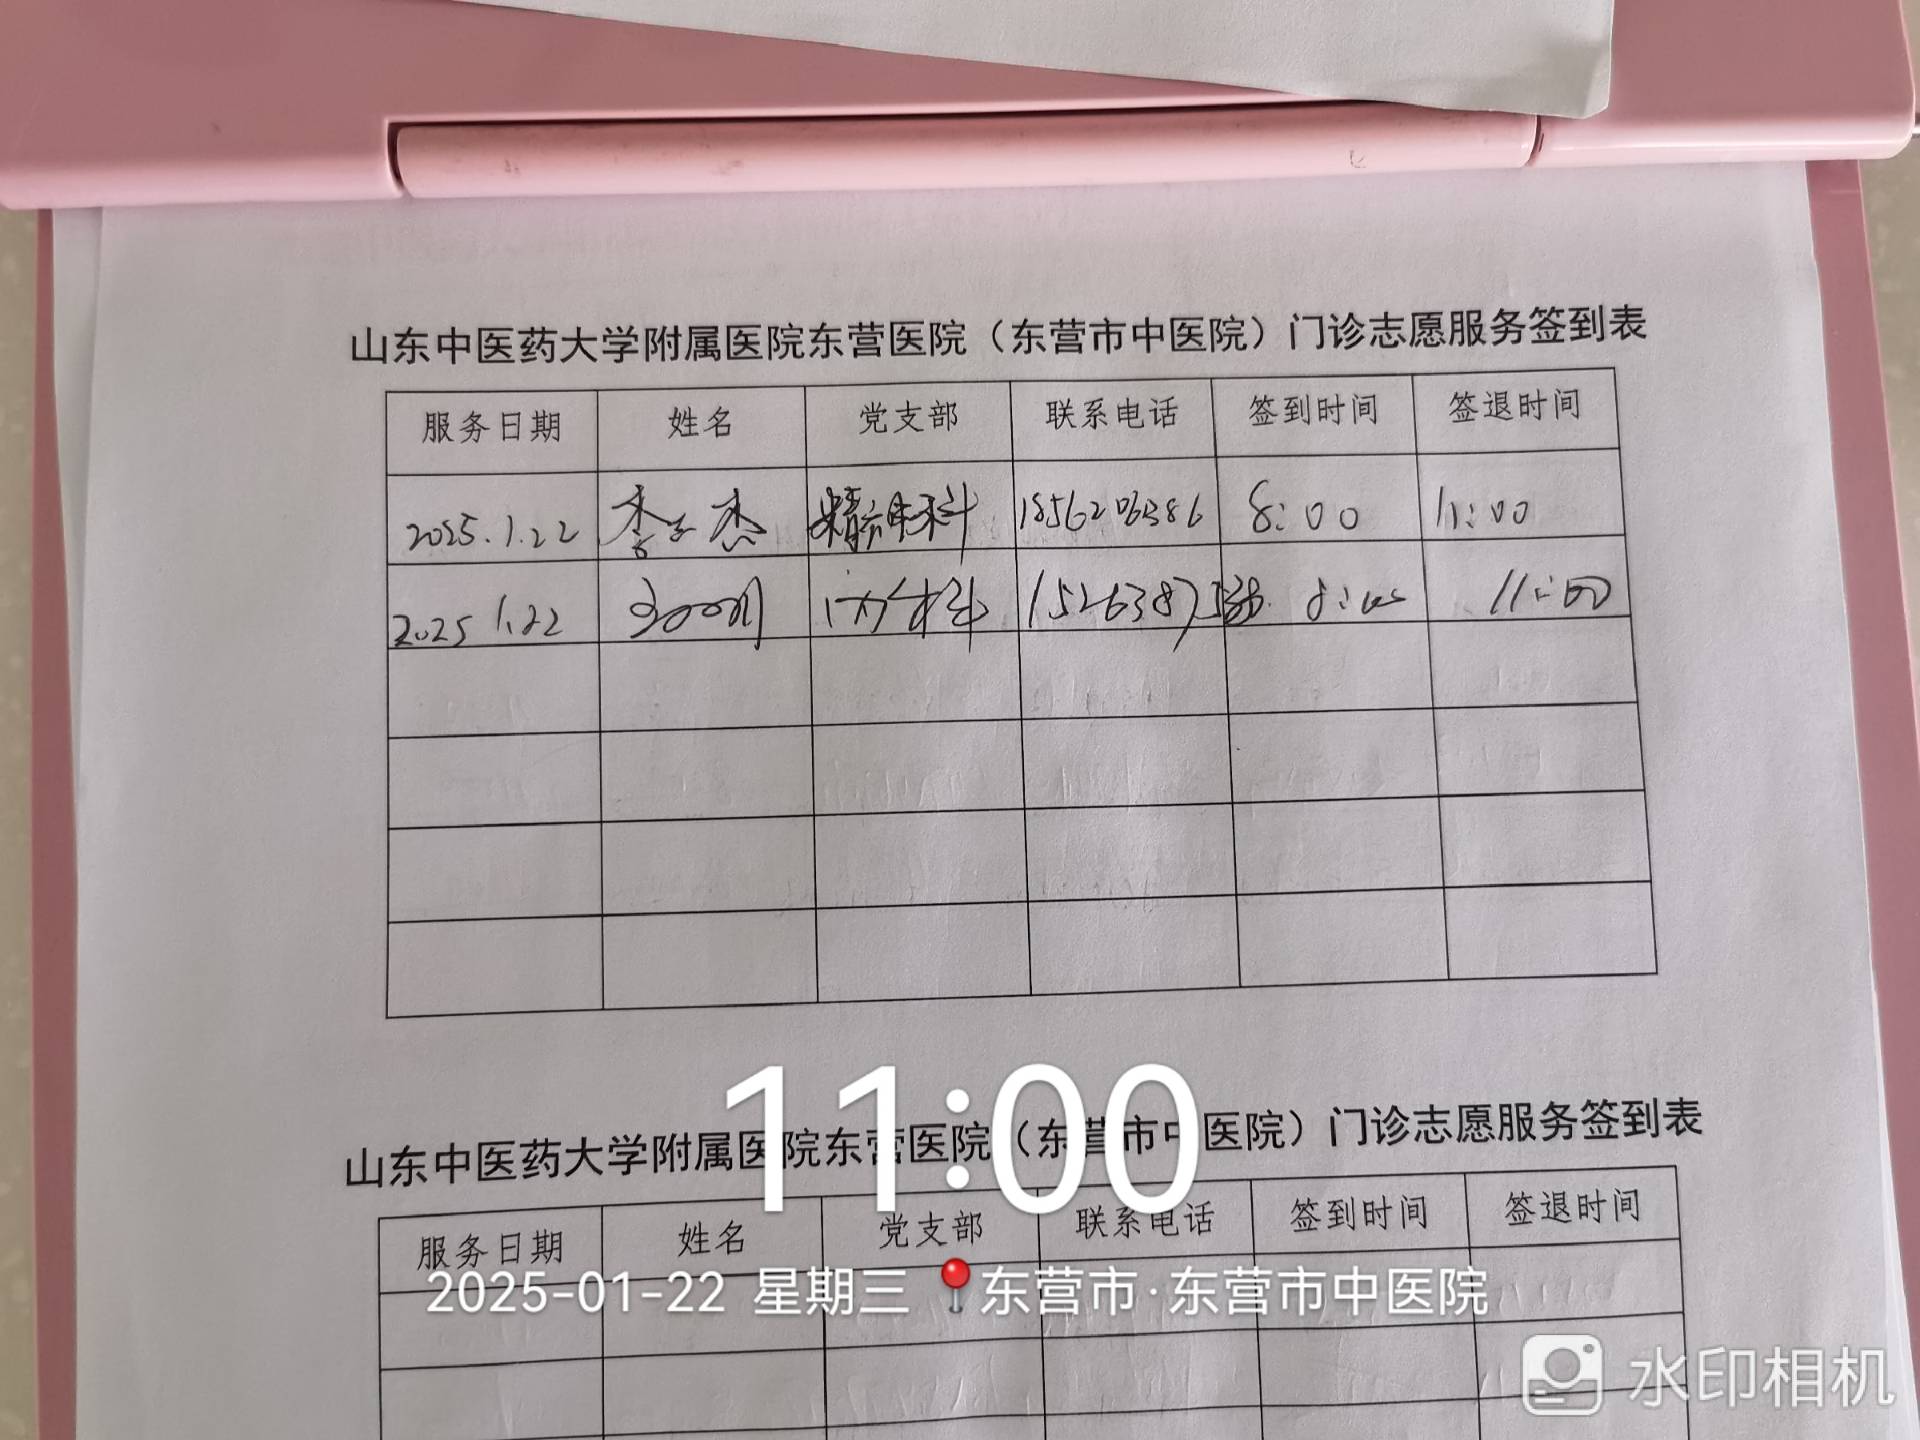 山东中医药大学附属医院东营医院（东营市中医院）门诊志愿服务签到表
服务日期 姓名 党支部 联系电话 签到时间 签退时间
2025.1.22 杰 科 8:00 11:00
2025 1.22 科 11:00
11:00
山东中医药大学附属医院东营医院（东营市中医院）门诊志愿服务签到表
服务日期 姓名 党支部 联系电话 签到时间 签退时间
2025-01-22 星期三 东营市·东营市中医院
水印相机